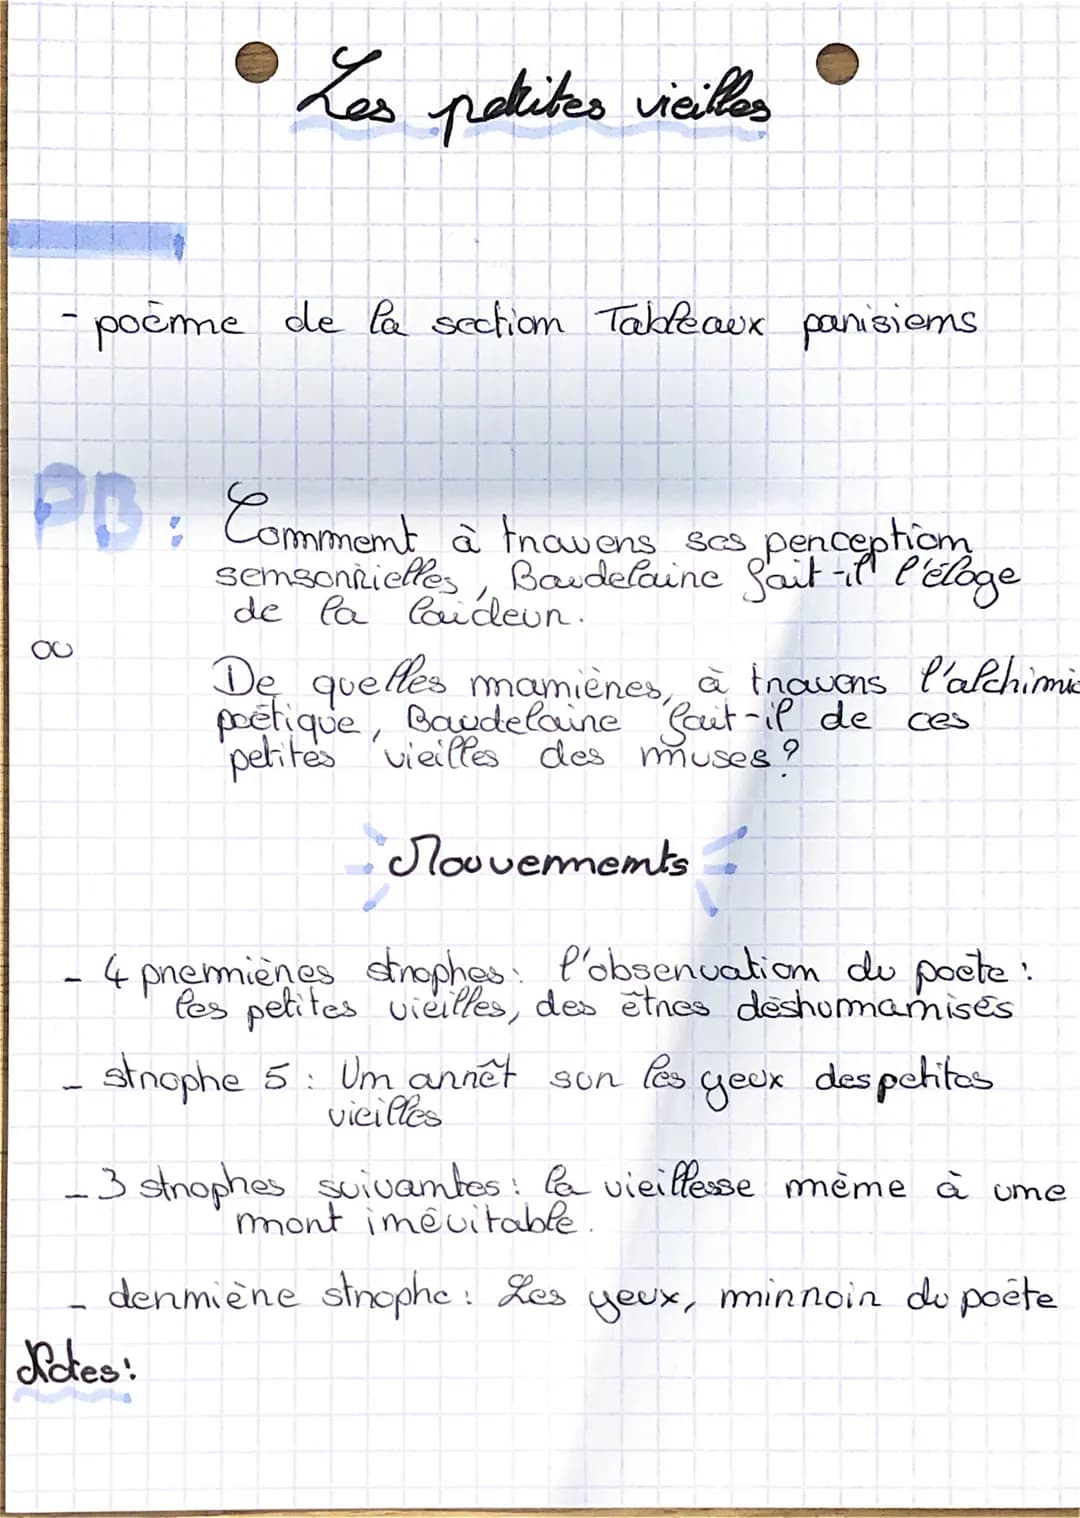 Les petites vieilles
- poème de la section Tableaux parisiens
PB : Comment à travers ses perception
sensorielles, Baudelaire fait-il l'éloge
de la laideur.
ou
De quelles manières, à travers l'alchimie
poétique, Baudelaire fait-il de ces
petites vieilles des muses ?
Mouvements
- 4 premières strophes : l'observation du poete :
les petites vieilles, des êtres déshumanisés
- strophe 5 : Un arrêt sur les yeux des petites
vieilles
- 3 strophes suivantes : la vieillesse mème à une
mort inévitable.
- dernière strophe : Les yeux, miroir du poète
Notes :